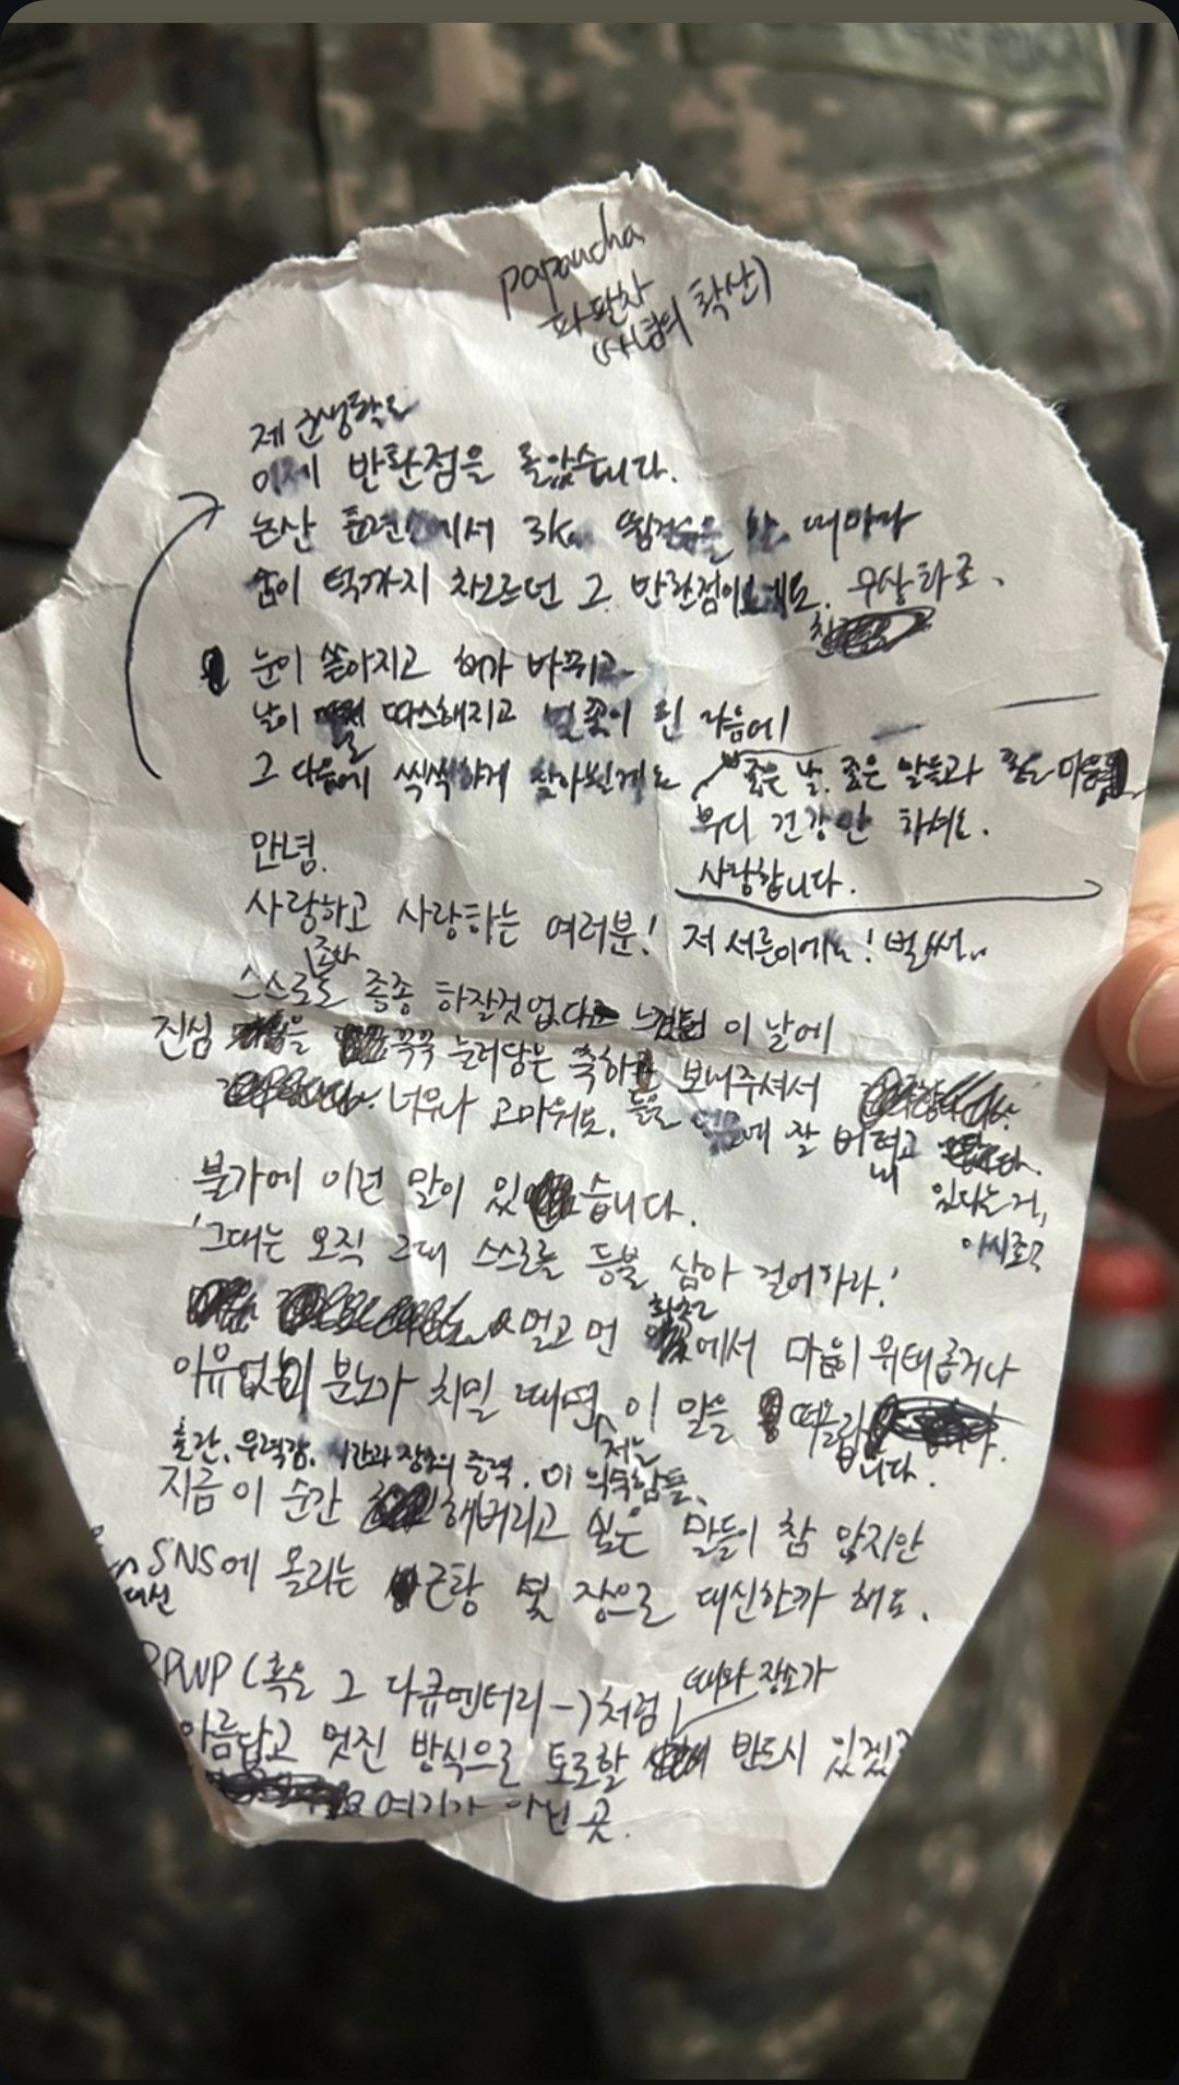 papancha
파판차
(사념의 확산)
제 군생활도
이제 반환점을 돌았습니다.
논산 훈련소에서 3km 뜀걸음을 할 때마다
숨이 턱까지 차오르던 그 반환점이
눈이 쏟아지고 해가 바뀌고
날이 따스해지고 벚꽃이 핀 다음에
그 다음에 씩씩하게 찾아뵐게요
좋은 날, 좋은 말들과 좋은 마음
부디 건강만 하셔요.
사랑합니다.
안녕.
사랑하고 사랑하는 여러분! 저 서른이에요! 벌써..
조차
스스로도 종종 하잘것없다 느꼈던 이 날에
진심을 꾹꾹 눌러담은 축하 보내주셔서
너무나 고마워요. 들을 잘 버텨내고
있다는 거,
아시죠?
불가에 이런 말이 있습니다.
'그대는 오직 그대 스스로를 등불 삼아 걸어가라.'
멀고 먼 화천에서 마음이 위태롭거나
이유없이 분노가 치밀 때면, 이 말을 떠올립니다.
혼란, 무력감, 시간과 장소의 중력, 이 익숙함들,
저는
지금 이 순간 해버리고 싶은 말들이 참 많지만
SNS에 올리는 근황 몇 장으로 대신할까 해요.
RPWP (혹은 그 다큐멘터리-)처럼
때와 장소가
아름답고 멋진 방식으로 토로할 반드시 있겠
여기가 아닌 곳.